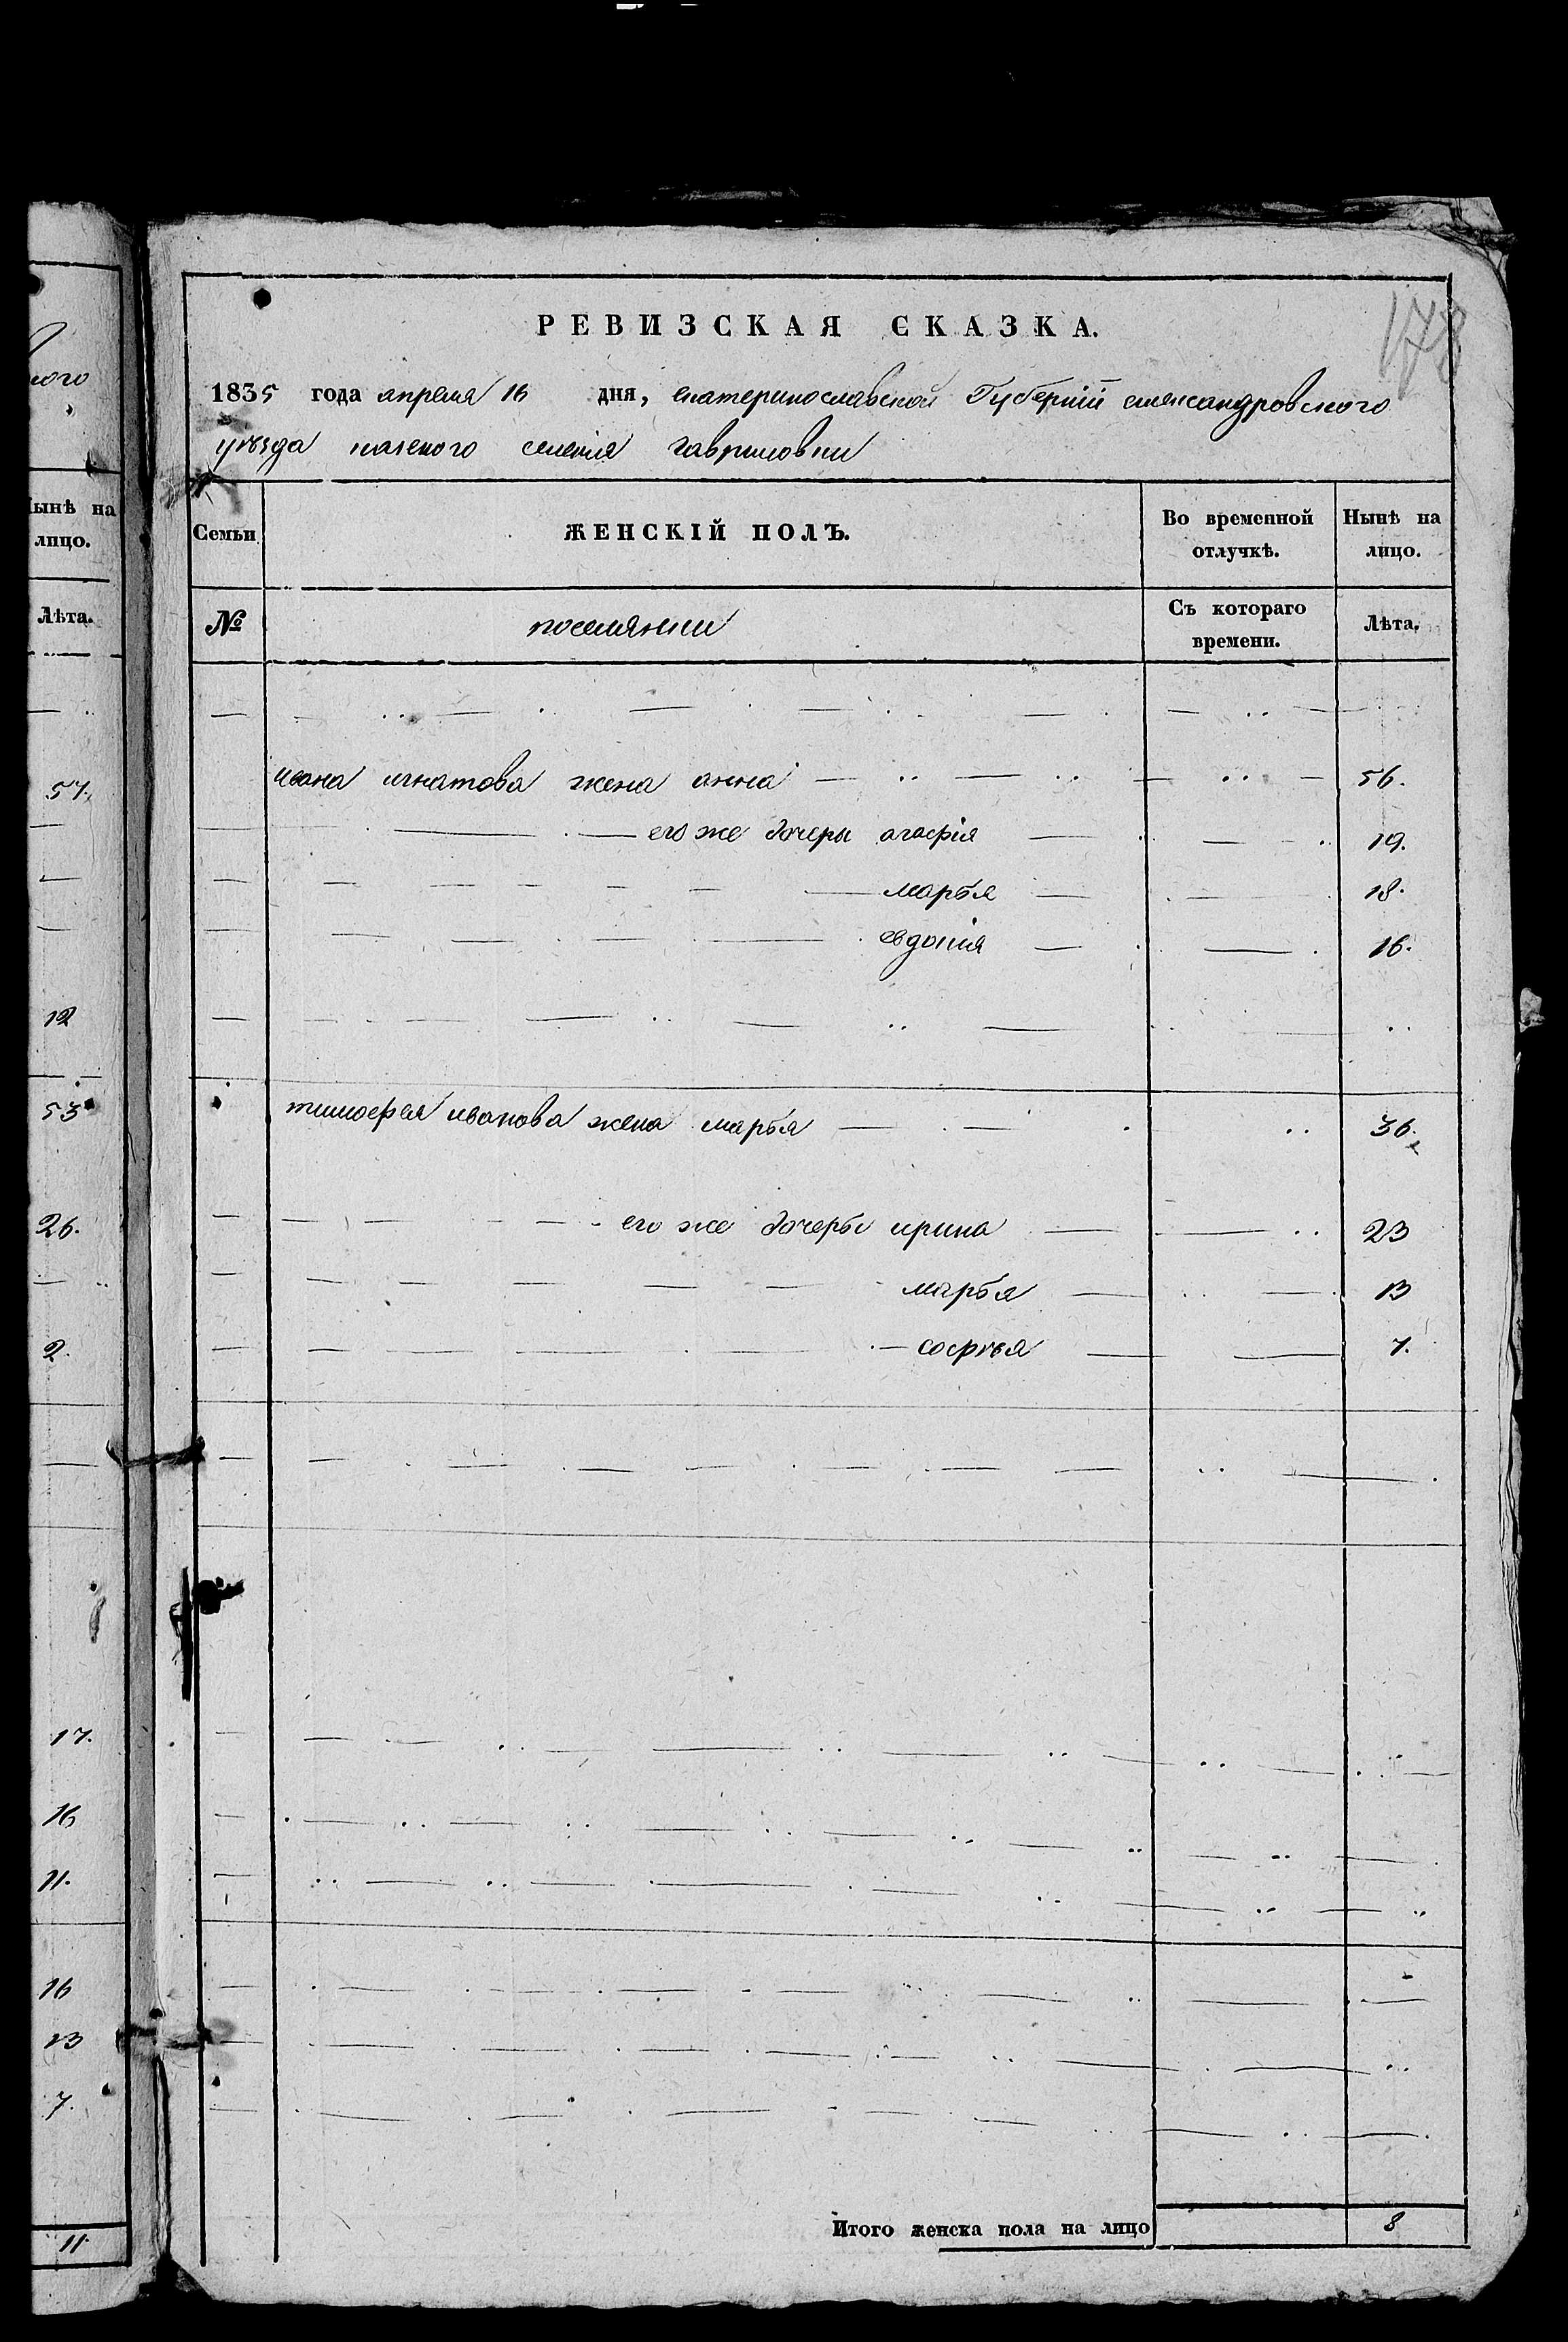 178
РЕВИЗСКАЯ СКАЗКА.
1835 года апреля 16 дня, екатеринославской Губернїи александровского
уѣзда казеного селенія гавриловки
Семьи
ЖЕНСКІЙ ПОЛЪ.
Во временной отлучкѣ.
Нынѣ на лицо.
№
поселянки
Съ котораго времени.
Лѣта.
ивана игнатова жена анна 56.
его же дочеры агафія 19.
марья 18.
евдокія 16.
тимофея иванова жена марья 36.
его же дочеры ирина 23
марья 13
софья 7.
Итого женска пола на лицо 8
ного
Нынѣ на
лицо.
Лѣта.
57.
12
53
26.
2.
17.
16
11.
16
13
7.
11